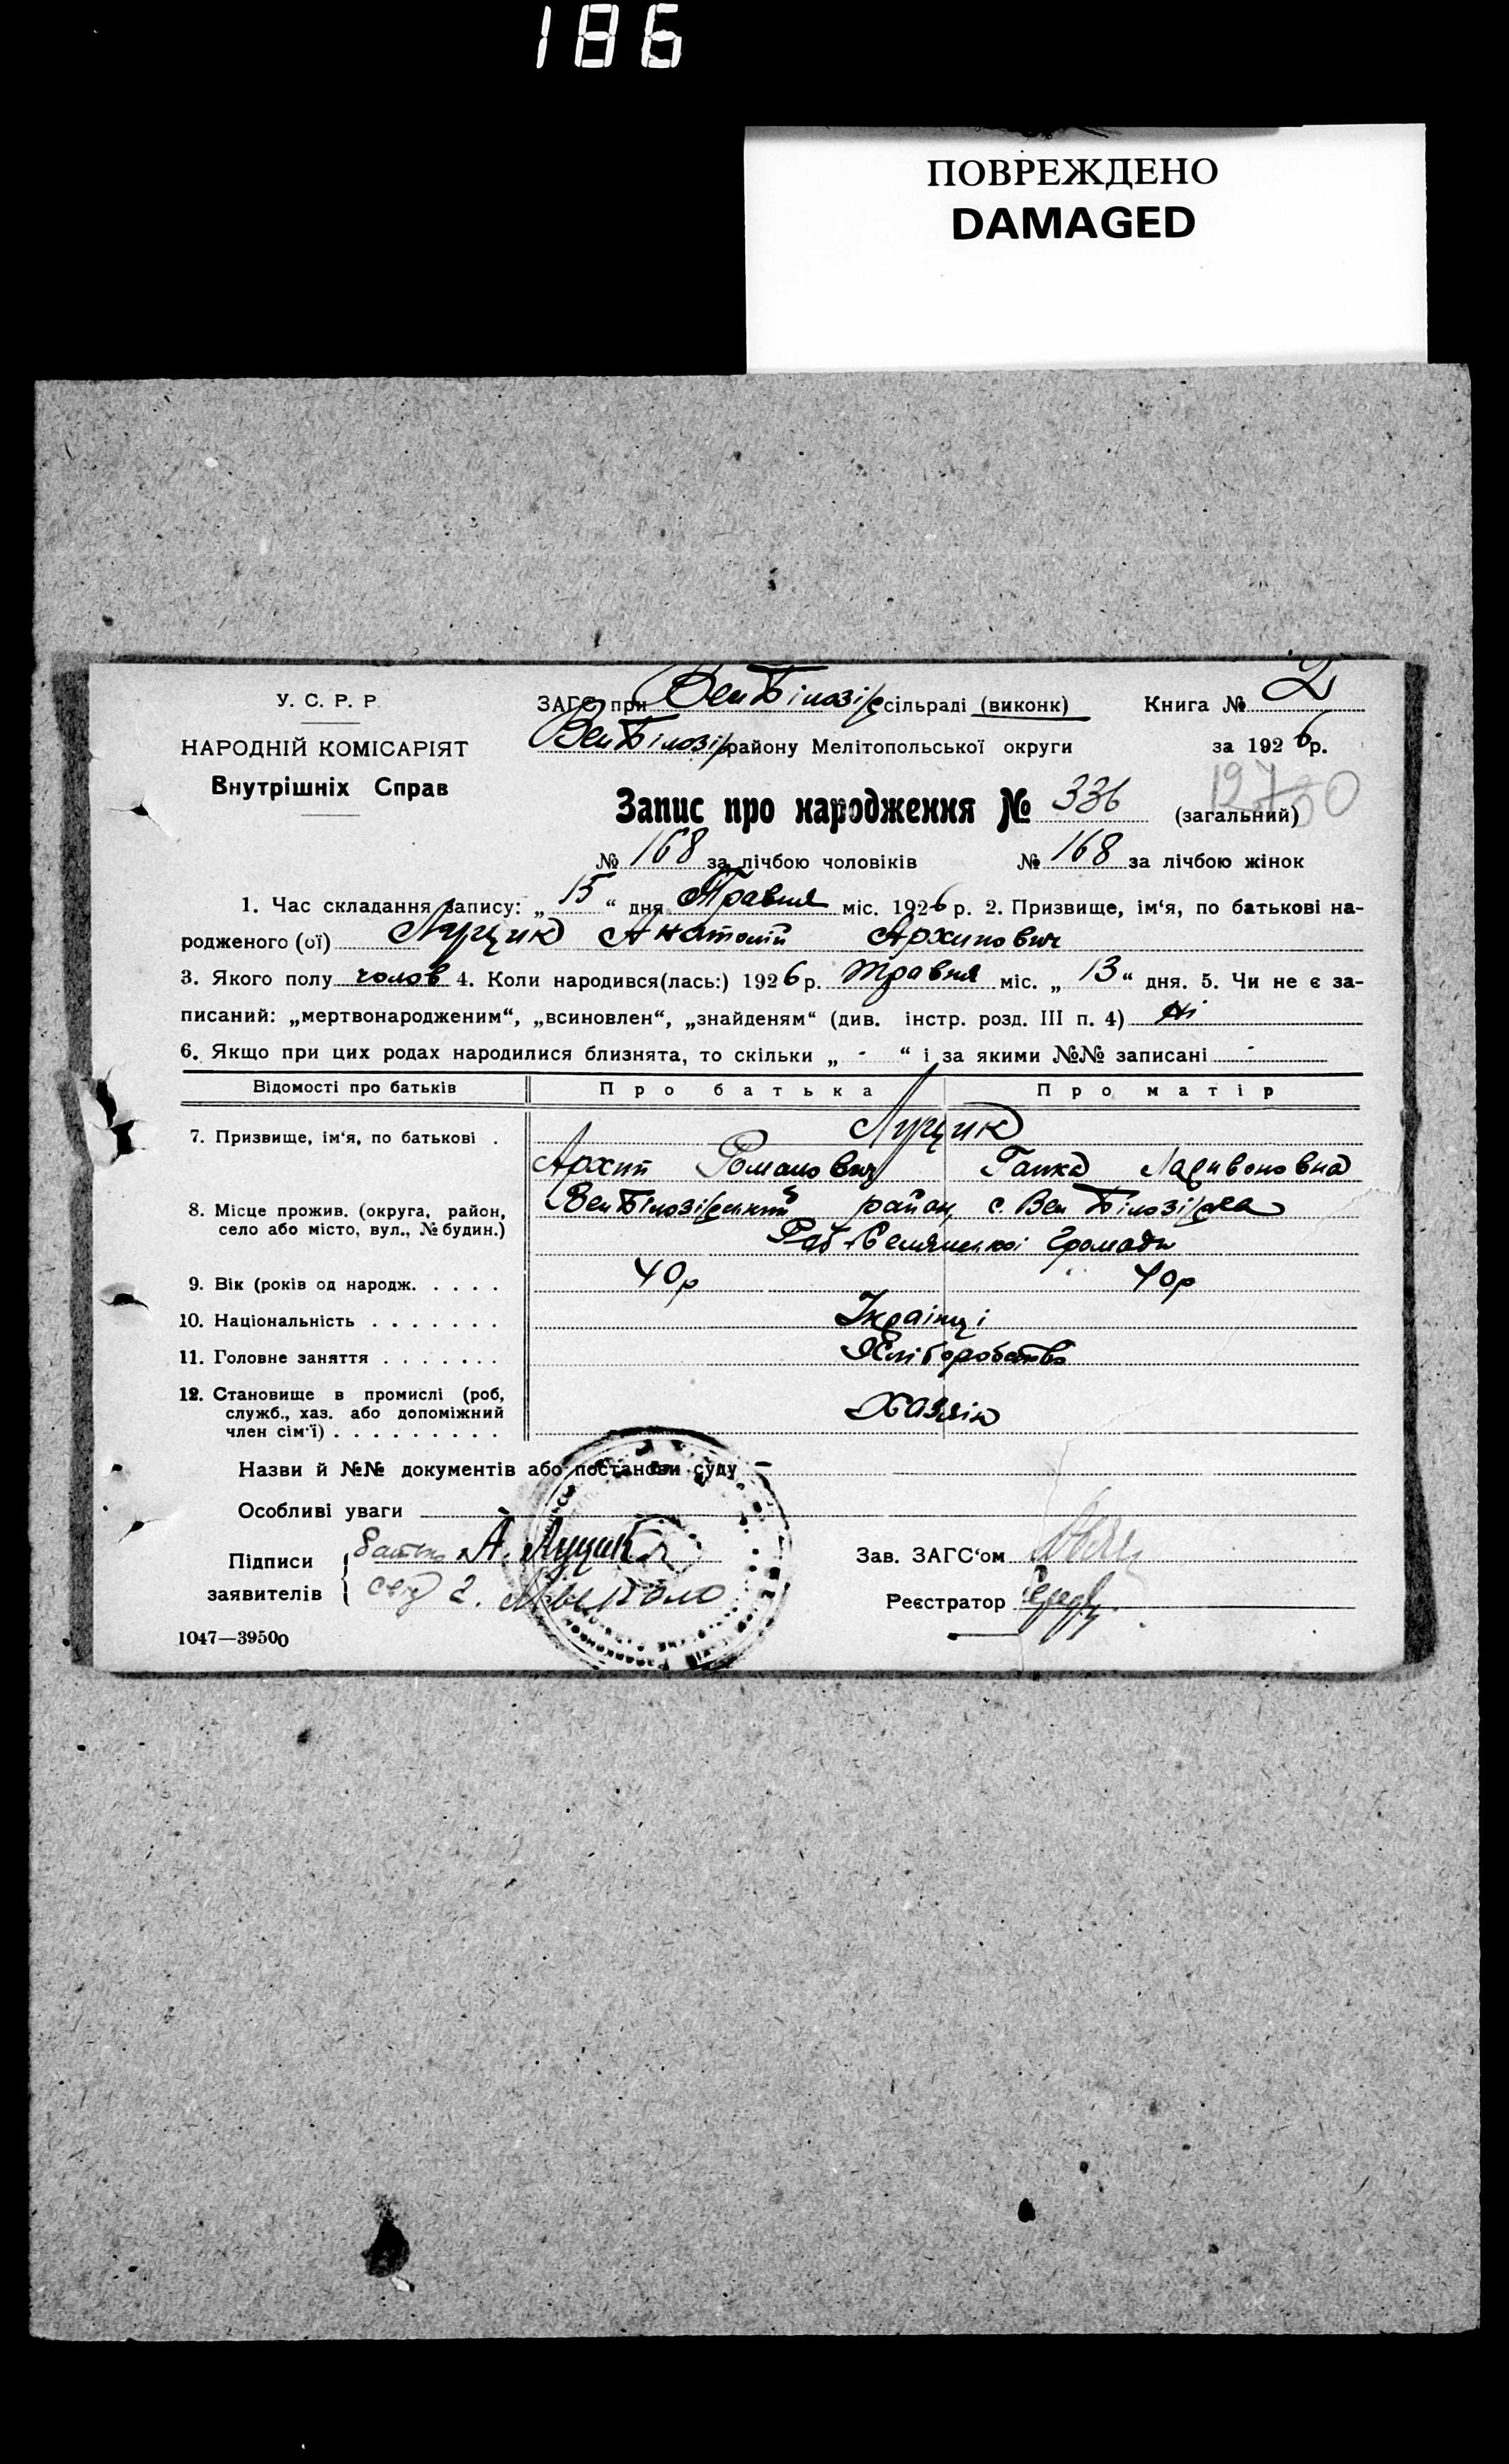 186
ПОВРЕЖДЕНО
DAMAGED
У. С. Р. Р.
НАРОДНІЙ КОМІСАРІЯТ
Внутрішніх Справ
ЗАГС при Вел Білозір сільраді (виконк) Книга № 2
Вел Білозір району Мелітопольської округи за 1926 р.
Запис про народження № 336 (загальний)
№ 168 за лічбою чоловіків № 168 за лічбою жінок
1. Час складання запису: „ 15 “ дня Травня міс. 1926 р. 2. Призвище, ім‘я, по батькові на-
родженого (ої) Луцик Анатолій Архипович
3. Якого полу чолов 4. Коли народився(лась:) 1926 р. Травня міс. „ 13 “ дня. 5. Чи не є за-
писаний: „мертвонародженим“, „всиновлен“, „знайденям“ (див. інстр. розд. III п. 4) Ні
6. Якщо при цих родах народилися близнята, то скільки „ - “ і за якими №№ записані -
Відомості про батьків Про батька Про матір
7. Призвище, ім‘я, по батькові . Луцик
Архип Романович Ганка Ларивоновна
8. Місце прожив. (округа, район, ВелБілозірський район, с. Вел Білозірка
село або місто, вул., № будин.) Селянської Громади
9. Вік (років од народж. . . . . 40р 40р
10. Національність . . . . . . . Українці
11. Головне заняття . . . . . . . Хліборобство
12. Становище в промислі (роб,
служб., хаз. або допоміжний Хазяїн
член сім‘ї) . . . . . . . . .
Назви й №№ документів або постанови суду -
Особливі уваги
Підписи батько А. Луцик Зав. ЗАГС‘ом
заявителів Реєстратор
1047—39500